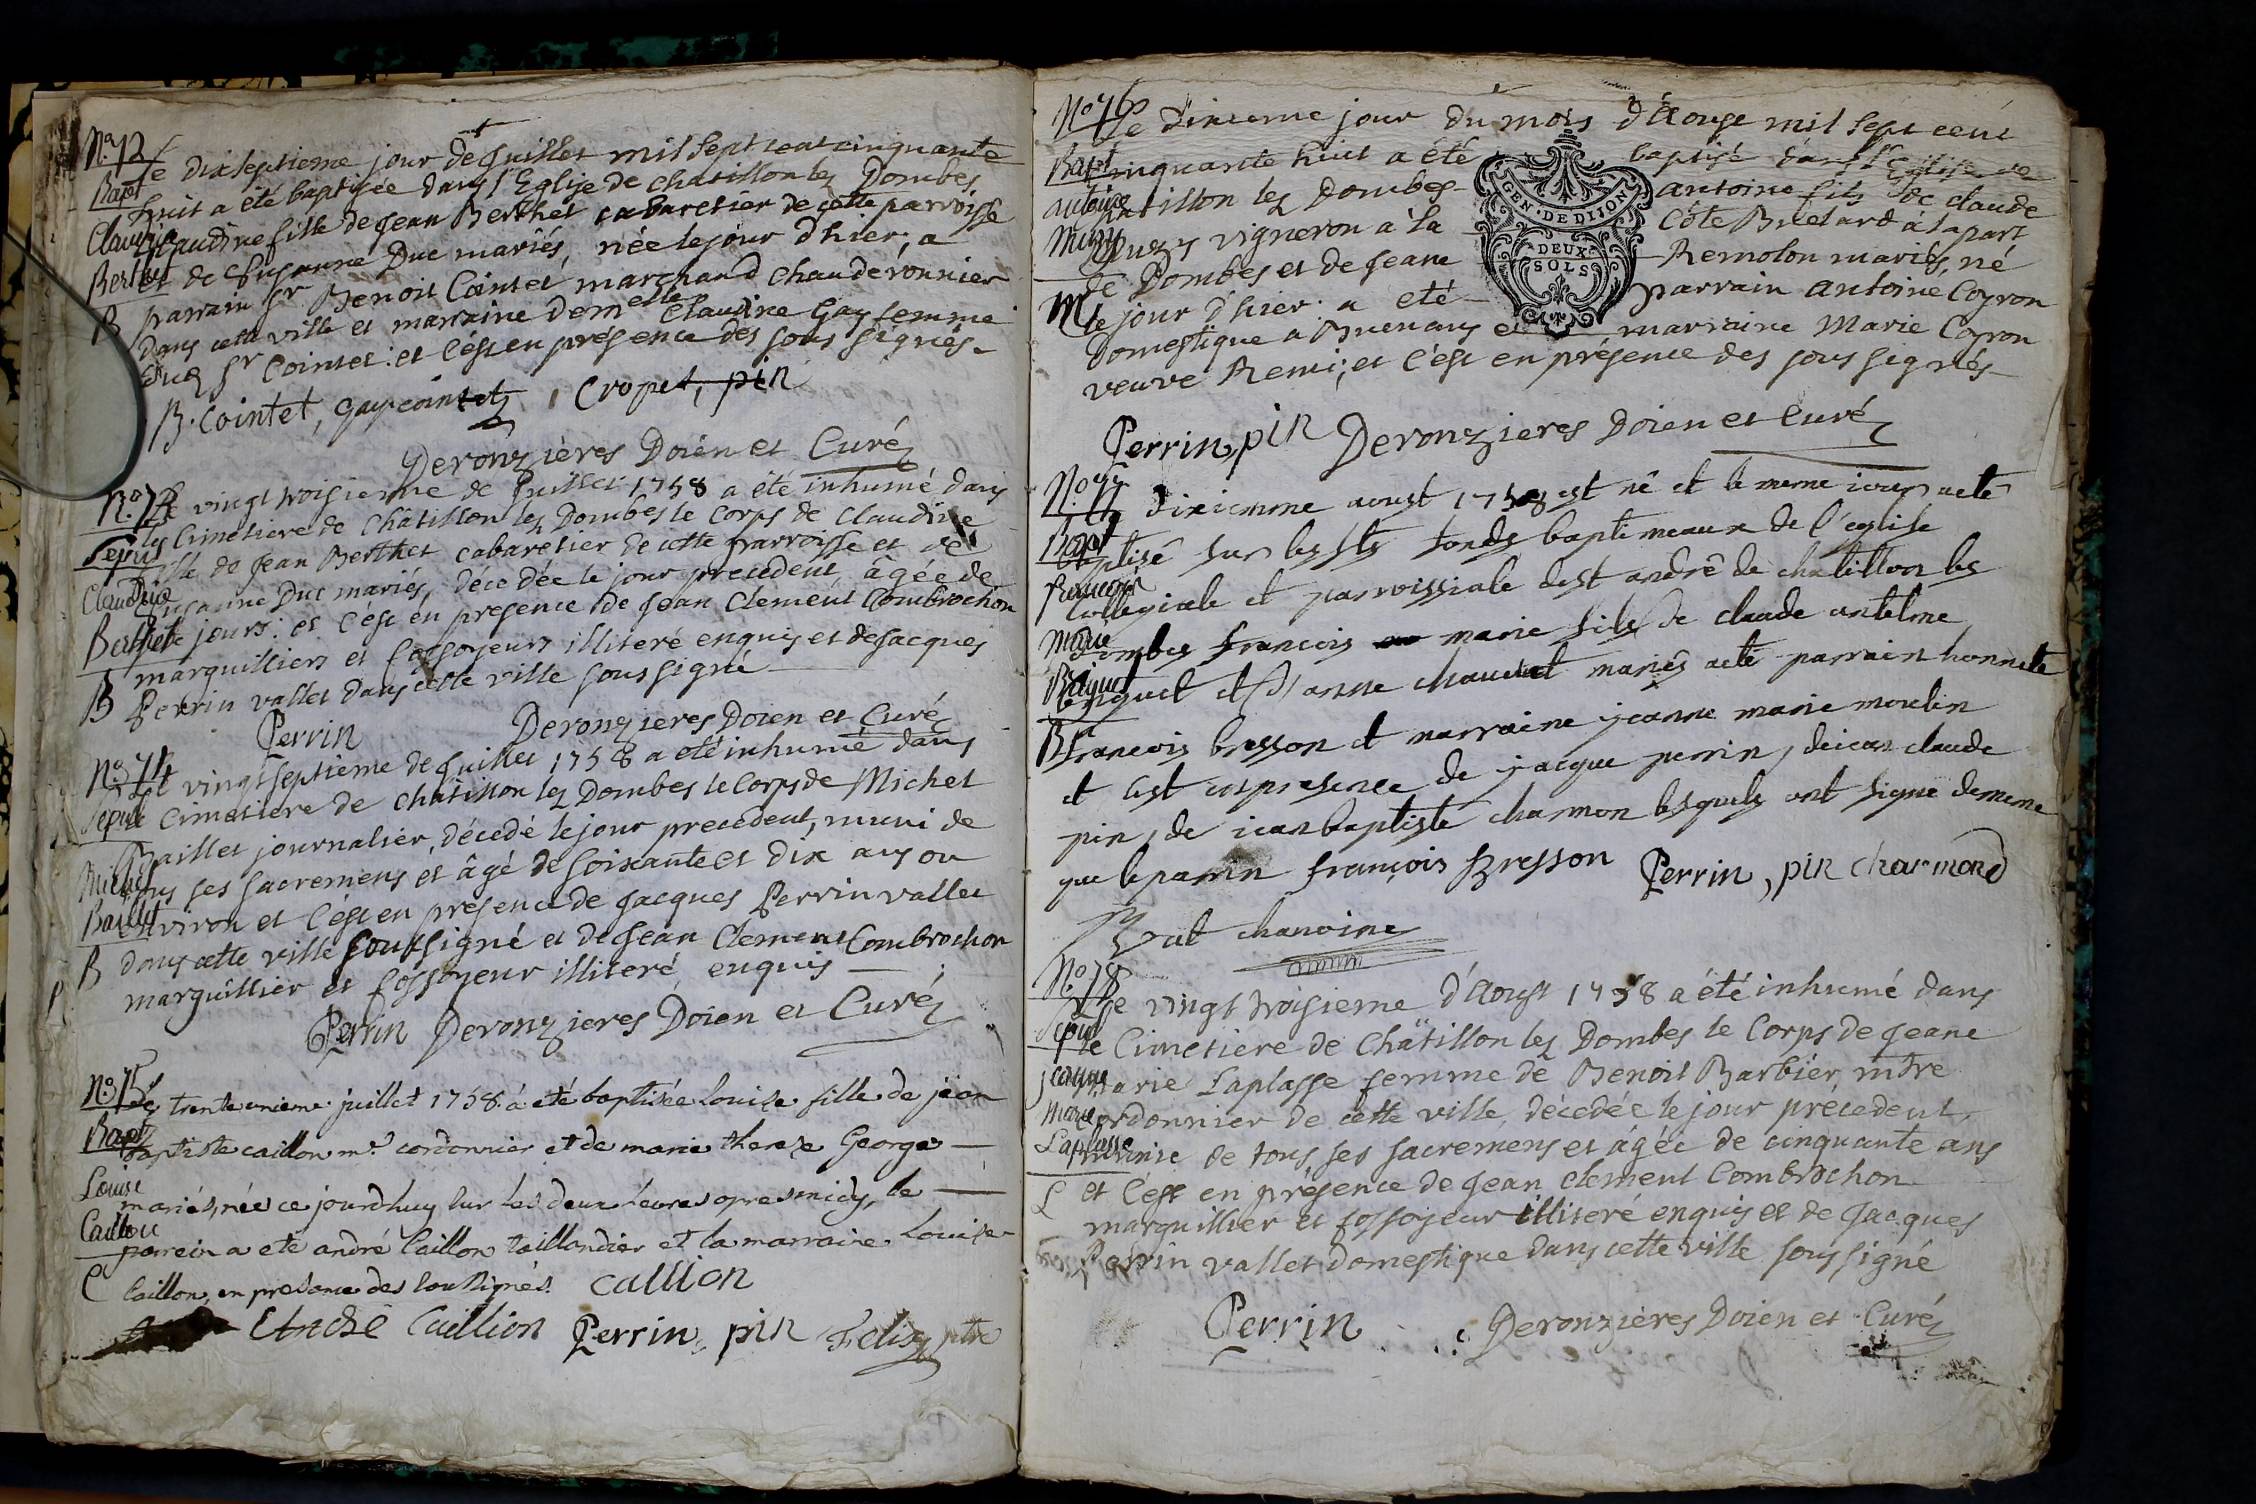 No. 72 Le dixseptieme jour de Juillet mil sept cent cinquante
Bapt huit a été baptisée dans l'Eglise de chatillon lez Dombes
Claudine Claudine fille de Jean Berthet cabaretier de cette parroisse
Berthet et de Susanne Duc mariés, née le jour d'hier, a
B parrain Sr Benoit Cointet marchand chauderonnier
dans cette ville et marraine demelle Claudine Gay femme
Sr Cointet: et c'est en présence des sous signés.
B. Cointet, Gay cointet, Cropet, pin
Deronzières Doien et Curé
No. Le vingt troisieme de Juillet 1758 a été inhumé dans
Sepul le Cimetiere de Châtillon lez Dombes le Corps de Claudine
fille de Jean Berthet cabaretier de cette parroisse et de
Claudine Susanne Duc mariés, décedée le jour precedent âgée de
Berthet jours: et c'est en presence de Jean Clement Combrochon
marguilliers et fossoyeurs illiteré enquis et de Jacques
B Perrin vallet dans cette ville soussigné
Perrin Deronzieres Doien et Curé
No. 74 Le vingt septieme de Juillet 1758 a été inhumé dans
Sepul le Cimetiere de chatillon lez Dombes le Corps de Michel
Baillet journalier, décedé le jour precedent, muni de
Michel tous ses sacremens et âgé de soixante et dix ans ou
Baillet environ et c'est en présence de Jacques Perrin vallet
B dans cette ville soussigné et de Jean Clement Combrochon
marguillier et fossoyeur illiteré enquis
Perrin Deronzieres Doien et Curé
No. 75 Le trente unieme juillet 1758. a été baptisée Louise fille de jean
Bapt baptiste caillon me. cordonnier et de marie therese George
Louise mariés, née ce jourdhuy sur les deux heures apres midy, le
Caillon parrein a eté andré Caillon taillandier et la marraine Louise
C Caillon, en presence des soussignés. caillion
André Caillion Perrin, pin Felix, ptre
No. 76 Le dixieme jour du mois d'Aoust mil sept cent
Bapt cinquante huit a été baptisé dans l'Eglise de
antoine chatillon lez Dombes antoine fils de claude
vigneron à la Côte Buelard à la part
de Dombes et de Jeane Remolon mariés, né
M le jour d'hier. a eté parrain antoine Coyron
domestique a et marraine Marie Coyron
veuve Remi; et c'est en présence des sous signés
GEN. DE DIJON
DEUX
SOLS
Perrin, pin Deronzieres Doien et Curé
No. 77 Le dixiemme aoust 1758 est né et le meme jour a eté
Bapt baptisé sur les sts fonds baptimeaux de l'eglise
francois Collegiale et parroissiale de st andré de chatillon les
marie Dombes francois marie fils de claude antelme
et d'anne mariés a eté parrain honnete
B francois bresson et marraine jeanne marie moulin
et c'est en presence de jacque perrin, de jean claude
pin, de jean baptiste charmon lesquels ont signe de meme
que le parrin françois Bresson Perrin, pin charmond
chanoine
No. 78 Le vingt troisieme d'Aoust 1758 a été inhumé dans
Sepul le Cimetiere de Châtillon lez Dombes le Corps de Jeane
jeanne Marie Laplasse femme de Benoit Barbier, mtre
marie Cordonnier de cette ville, décedée le jour précedent,
Laplasse munie de tous ses sacremens et âgée de cinquante ans
L et c'est en présence de Jean clement Combrochon
marguillier et fossoyeur illiteré enquis et de Jacques
Perrin vallet domestique dans cette ville soussigné
Perrin Deronzières Doien et Curé